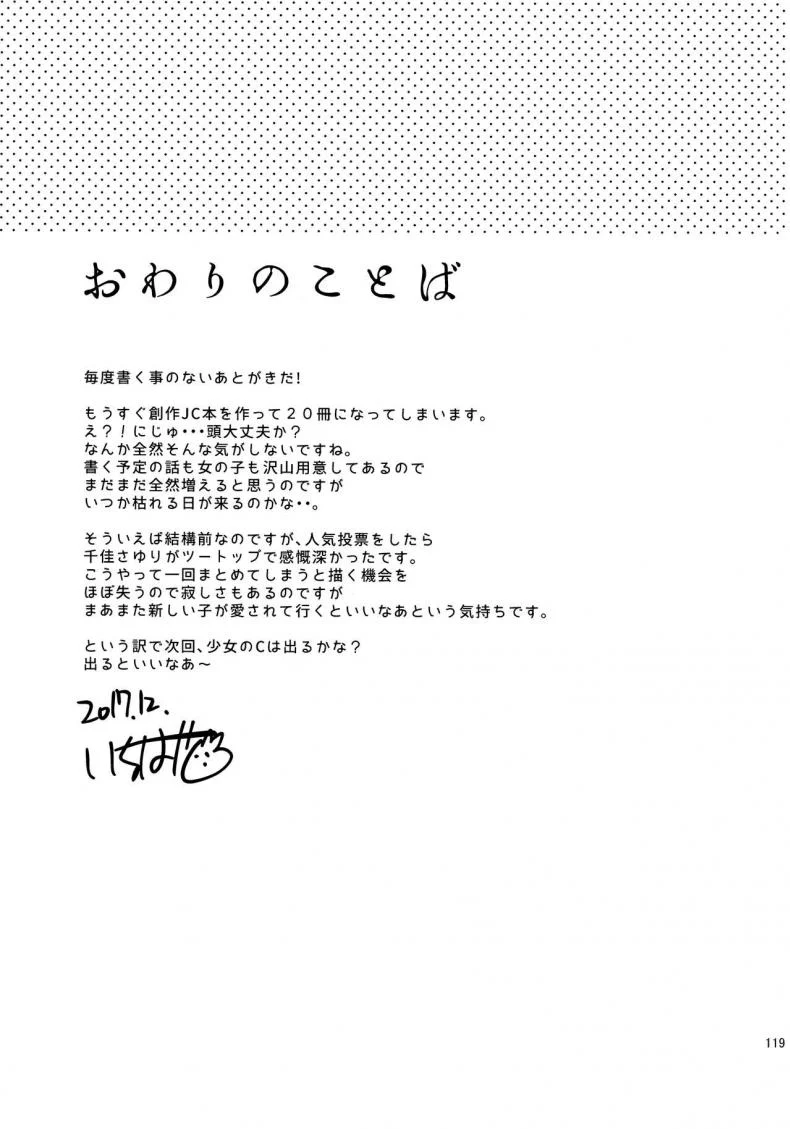 おわりのことば
毎度書く事のないあとがきだ!
もうすぐ創作JC本を作って20冊になってしまいます。
え?!にじゅ・・・頭大丈夫か?
なんか全然そんな気がしないですね。
書く予定の話も女の子も沢山用意してあるので
まだまだ全然増えると思うのですが
いつか枯れる日が来るのかな・・。
そういえば結構前なのですが、人気投票をしたら
千佳さゆりがツートップで感慨深かったです。
こうやって一回まとめてしまうと描く機会を
ほぼ失うので寂しさもあるのですが
まあまた新しい子が愛されて行くといいなあという気持ちです。
という訳で次回、少女のCは出るかな?
出るといいなあ~
2017.12.
119